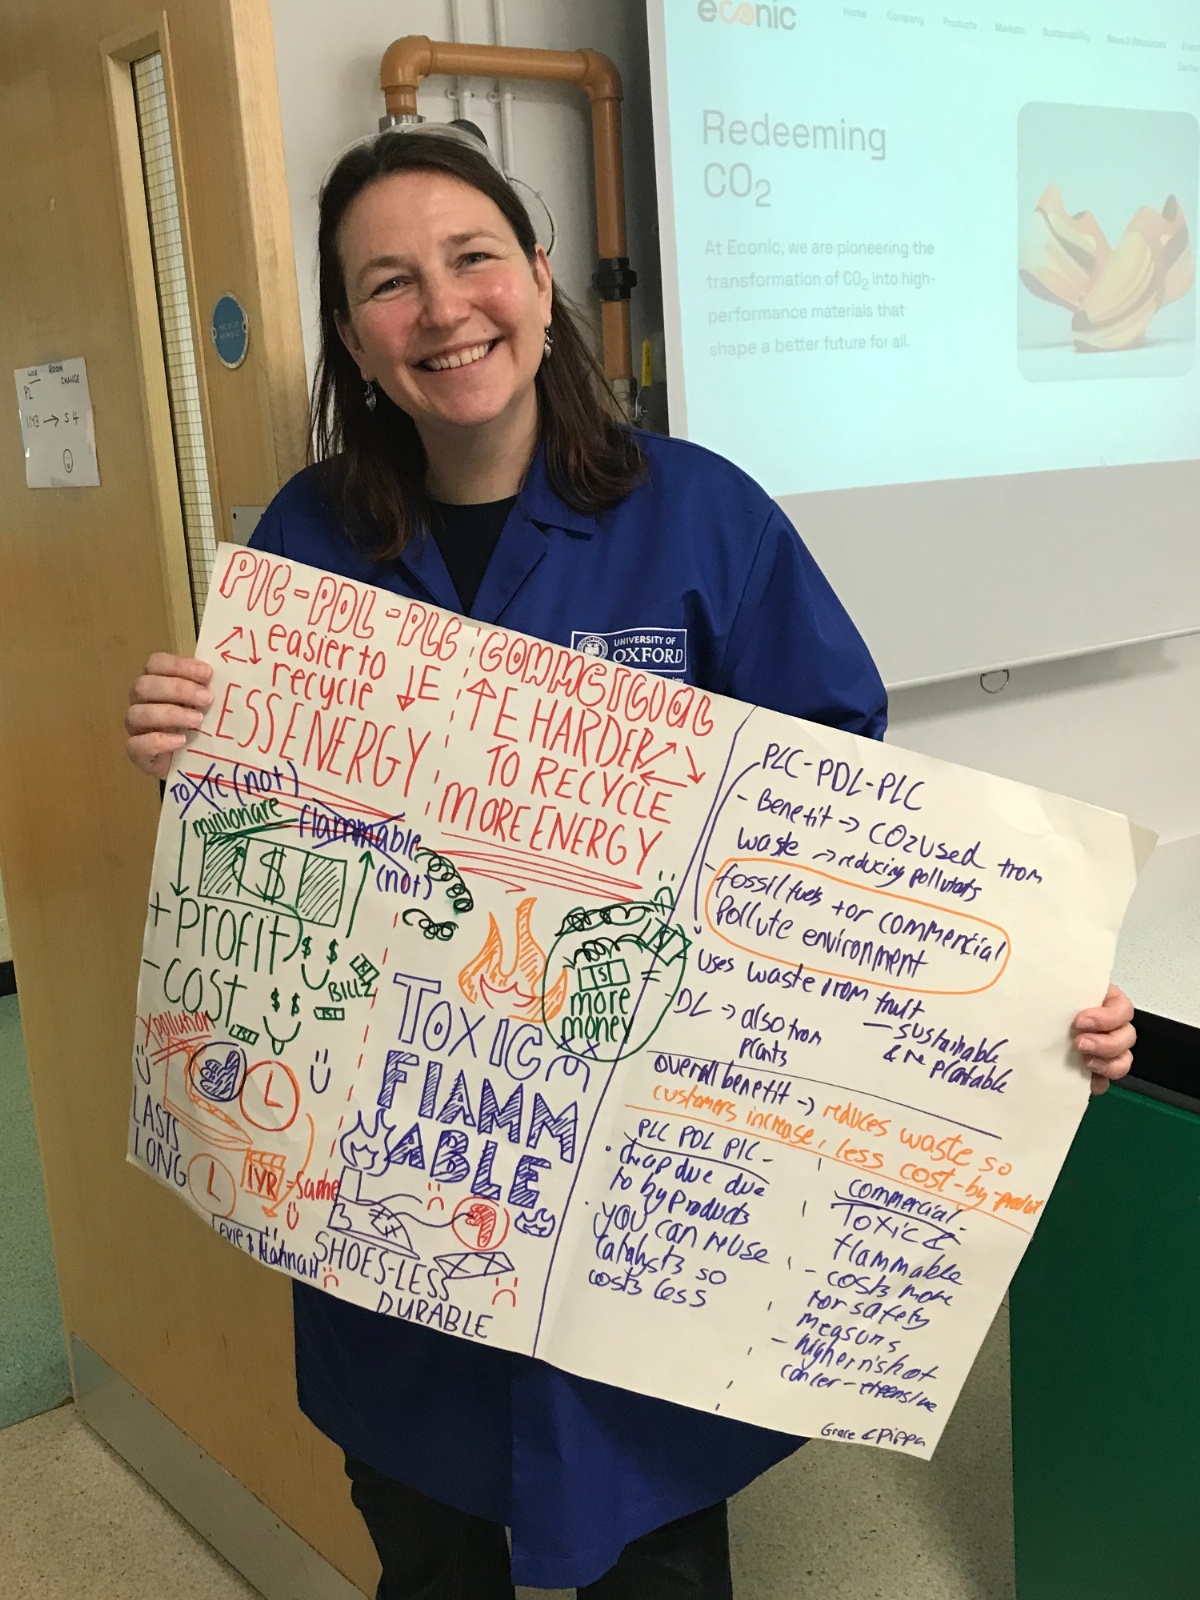 econic
Home Company Products Markets Sustainability News & Resources
Redeeming
CO2
At Econic, we are pioneering the
transformation of CO2 into high-
performance materials that
shape a better future for all.
ROOM
CHANGE
11Y3 → S4
UNIVERSITY OF
OXFORD
PLC-PDL-PLC
easier to
recycle ↓E
LESS ENERGY
COMMERCIAL
↑E HARDER
TO RECYCLE
MORE ENERGY
TOXIC (not)
millionare
flammable
(not)
$
+ PROFIT
- COST
$ $
$ $
BILLZ
X pollution
LASTS
LONG
IVR = same
Evie & Hannah
TOXIC
FLAMM
ABLE
$
more
money
SHOES-LESS
DURABLE
PLC-PDL-PLC
- Benefit → CO2 used from
waste → reducing pollutants
- fossil fuels for commercial
pollute environment
- Uses waste from fruit
— sustainable
& replantable
- DL → also from
plants
overall benefit → reduces waste so
customers increase, less cost-by-product
PLC PDL PLC -
· cheap due due
to by products
· you can reuse
catalysts so
costs less
commercial-
Toxic &
flammable
- costs more
for safety
measurs
- higher risk of
cancer - expensive
Grace & Pippa